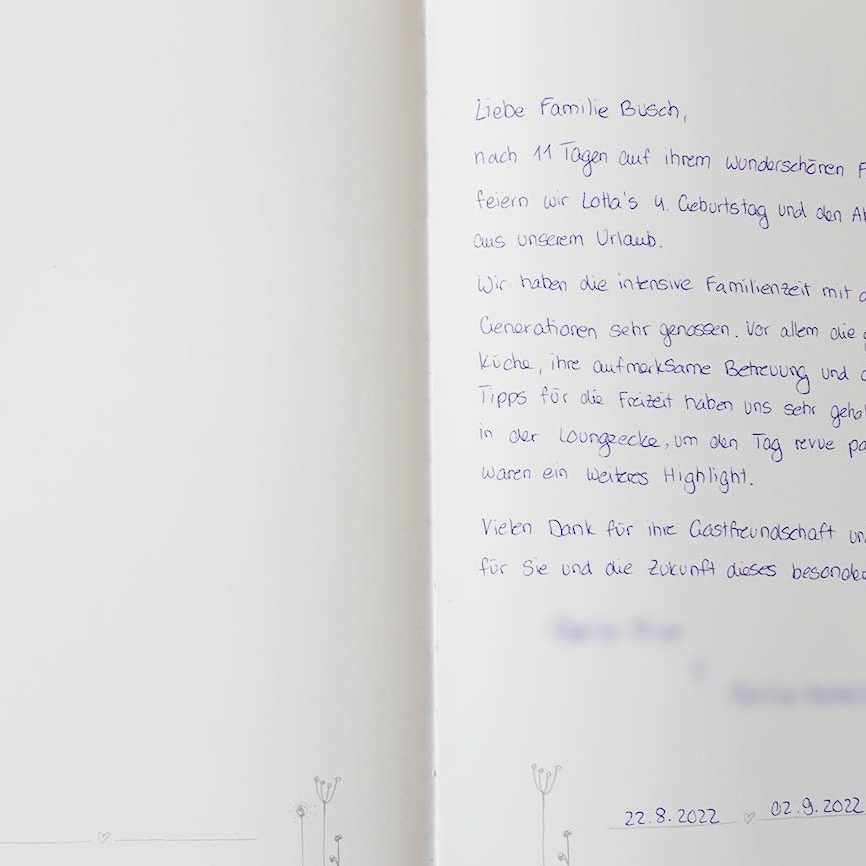 Liebe Familie Busch,
nach 11 Tagen auf ihrem wunderschönen F
feiern wir Lotta's 4. Geburtstag und den Ab
aus unserem Urlaub.
Wir haben die intensive Familienzeit mit
Generationen sehr genossen. Vor allem die
Küche, ihre aufmerksame Betreuung und
Tipps für die Freizeit haben uns sehr geho
in der Loungeecke, um den Tag revue pa
waren ein weiteres Highlight.
Vielen Dank für ihre Gastfreundschaft un
für Sie und die Zukunft dieses besonder
22.8.2022 02.9.2022